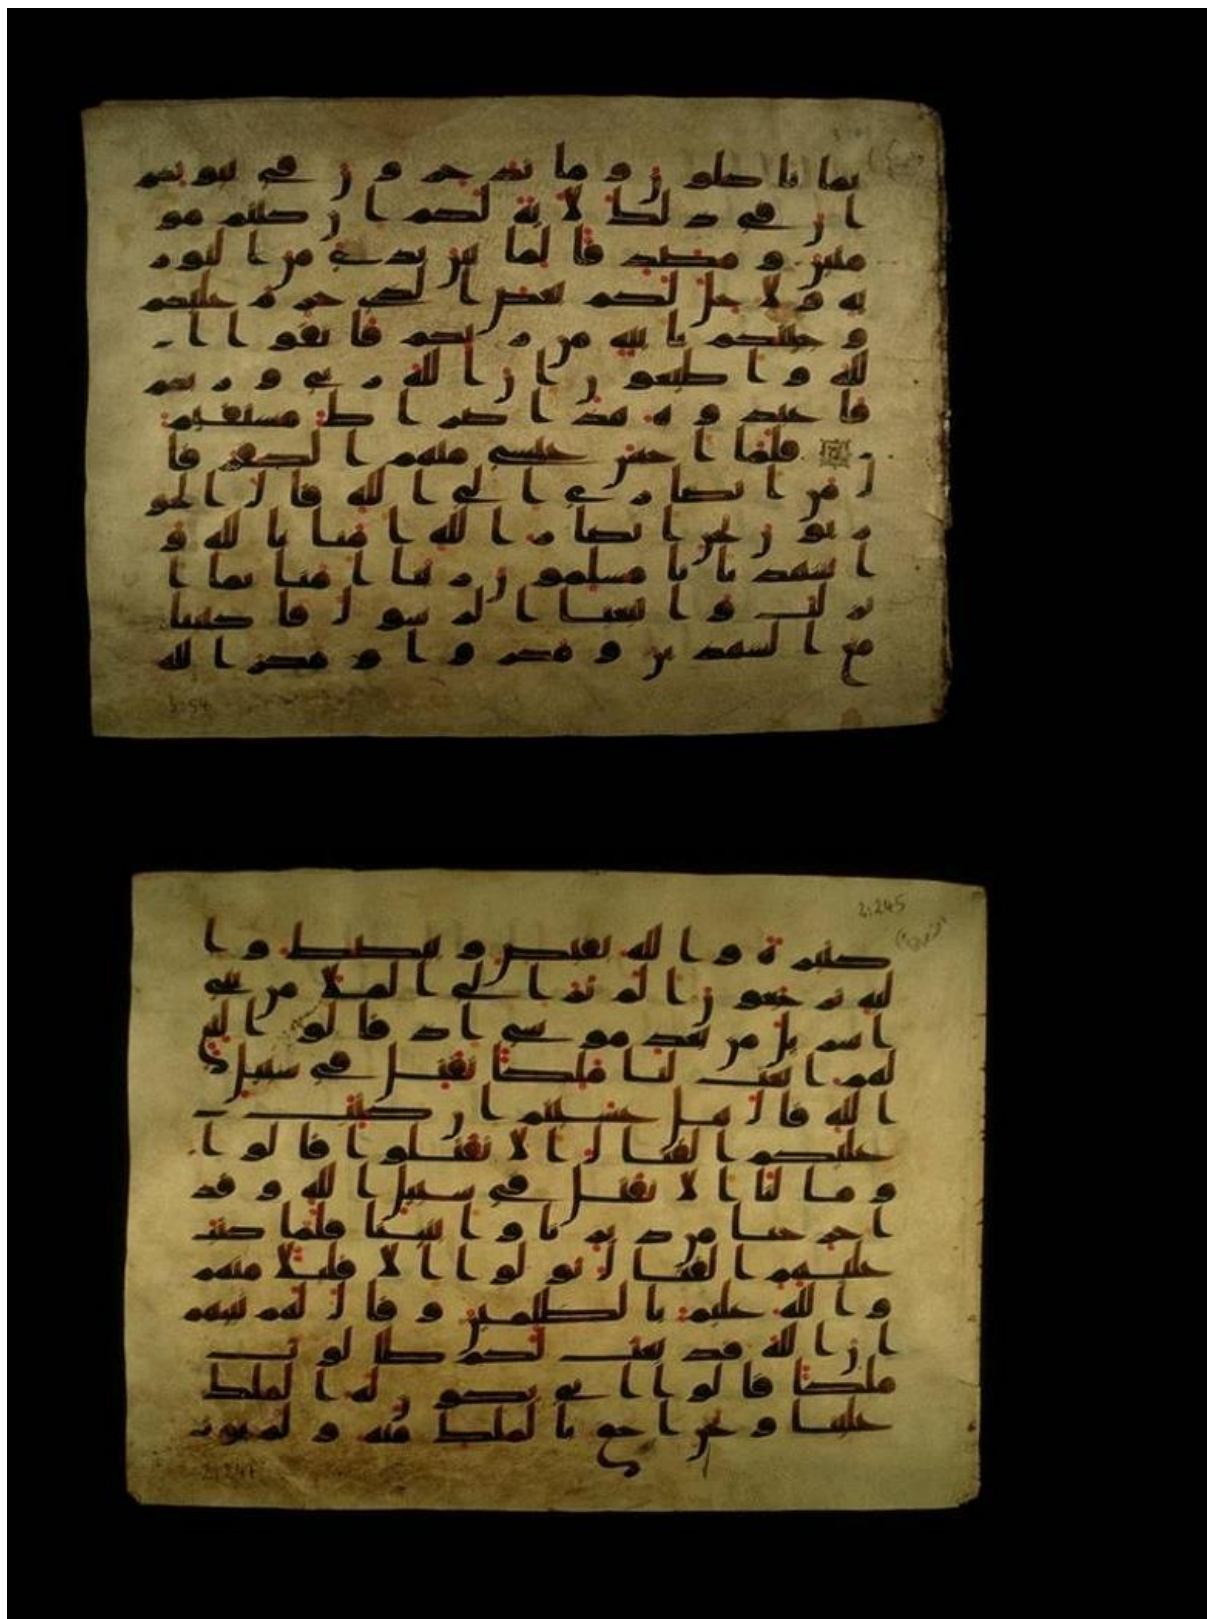 بما تاكلون وما تدخرون في بيوتكم
ان في ذلك لاية لكم ان كنتم مو
منين ومصدقا لما بين يدي من التور
ية ولاحل لكم بعض الذي حرم عليكم
وجئتكم باية من ربكم فاتقوا ا
لله واطيعون ان الله ربي وربكم
فاعبدوه هذا صراط مستقيم
فلما احس عيسى منهم الكفر قا
ل من انصاري الى الله قال الحو
ريون نحن انصار الله امنا بالله و
اشهد بانا مسلمون ربنا امنا بما ا
نزلت واتبعنا الرسول فاكتبنا
مع الشهدين ومكروا ومكر الله
3:54
2:245
كثيرة والله يقبض ويبصط وا
ليه ترجعون الم تر الى الملا من بني
اسريل من بعد موسى اذ قالوا لنبي
لهم ابعث لنا ملكا نقتل في سبيل
الله قال هل عسيتم ان كتب
عليكم القتال الا تقتلوا قالوا
وما لنا الا نقتل في سبيل الله وقد
اخرجنا من ديرنا وابنائنا فلما كتب
عليهم القتال تولوا الا قليلا منهم
والله عليم بالظلمين وقال لهم نبيهم
ان الله قد بعث لكم طالوت
ملكا قالوا انى يكون له الملك
علينا ونحن احق بالملك منه ولم يوت
2:247